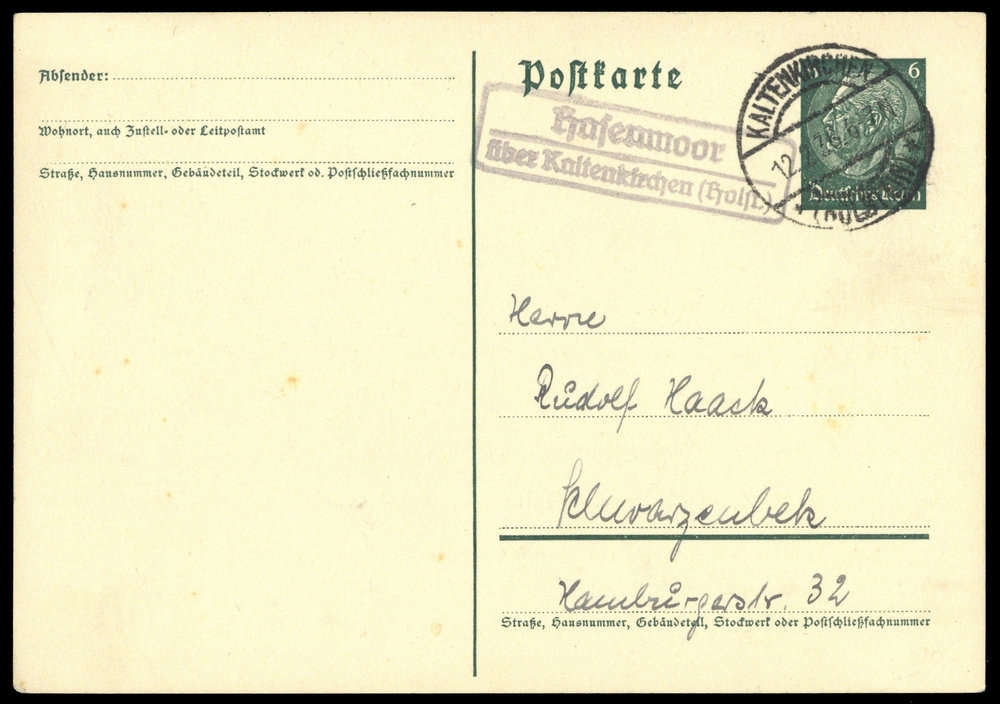 Absender:
Wohnort, auch Zustell- oder Leitpostamt
Straße, Hausnummer, Gebäudeteil, Stockwerk od. Postschließfachnummer
Postkarte
Hasenmoor
über Kaltenkirchen (Holst.)
KALTENKIRCHEN
12.
(HOLSTEIN)
6
Deutsches Reich
Herrn
Rudolf Haack
Schwarzenbek
Hamburgerstr. 32
Straße, Hausnummer, Gebäudeteil, Stockwerk oder Postschließfachnummer